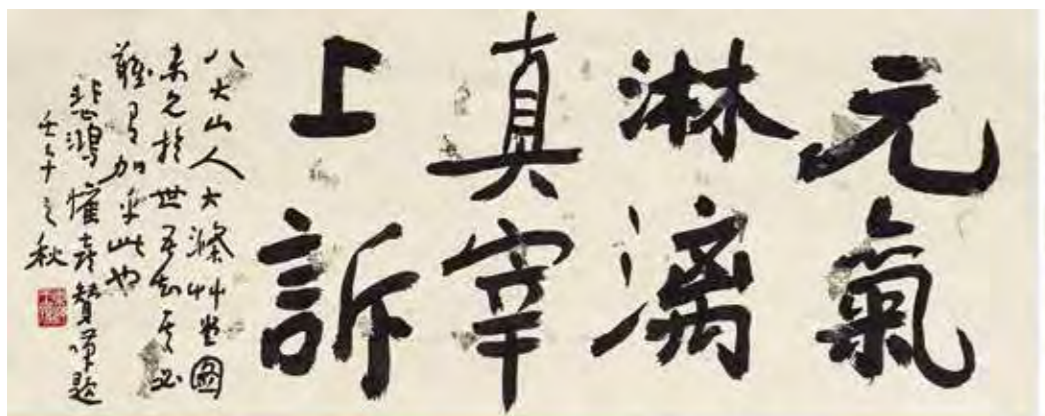 元氣
淋漓
真宰
上訴
八大山人大滌艸堂圖
未見於世吾知其必
難有加乎此也
悲鴻懽喜贊嘆題
壬午之秋